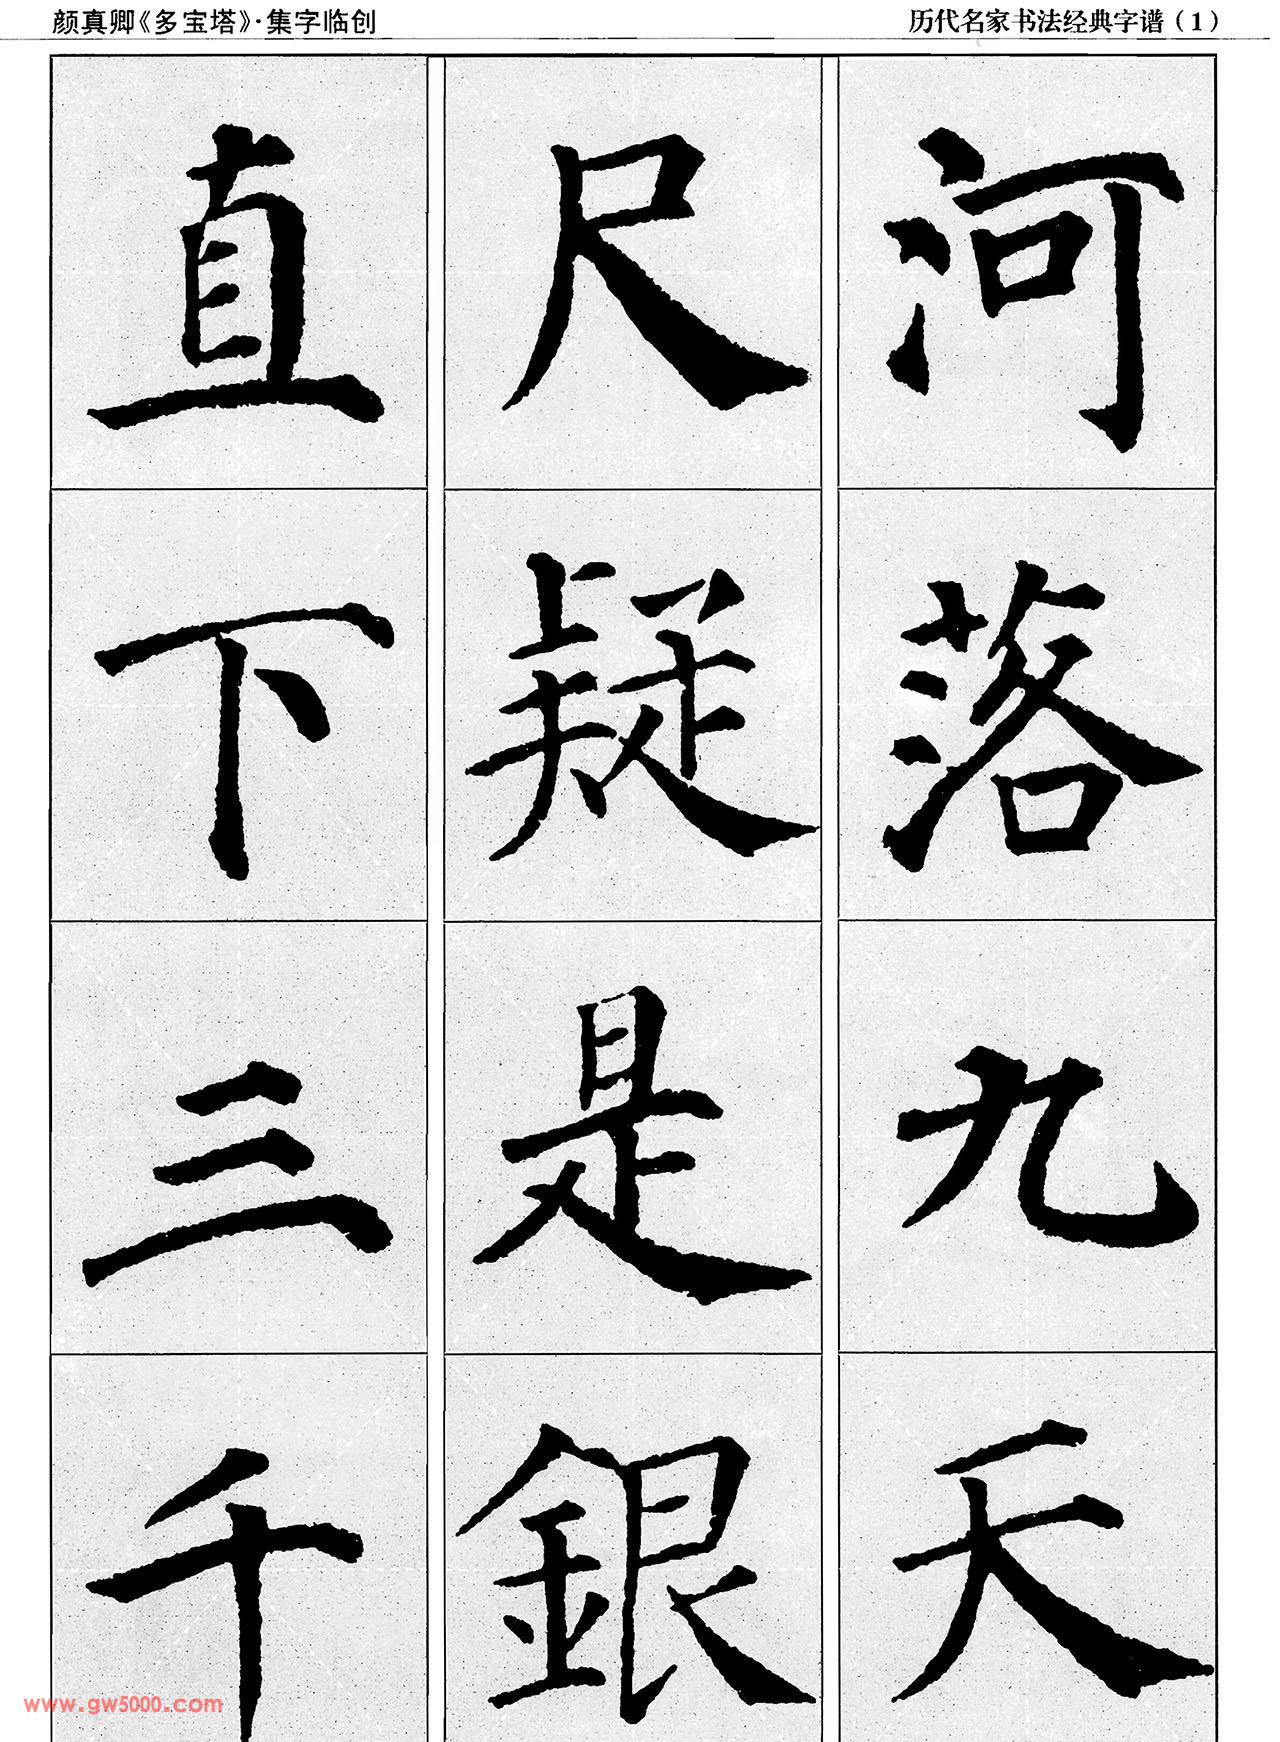 颜真卿《多宝塔》·集字临创
历代名家书法经典字谱（1）
河落九天
尺疑是銀
直下三千
www.gw5000.com